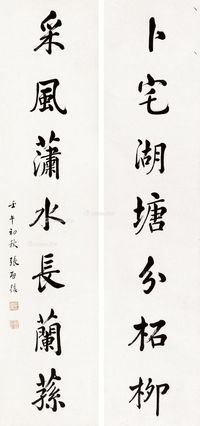 卜宅湖塘分柘柳
采風瀟水長蘭蓀
壬午初秋 張啟後